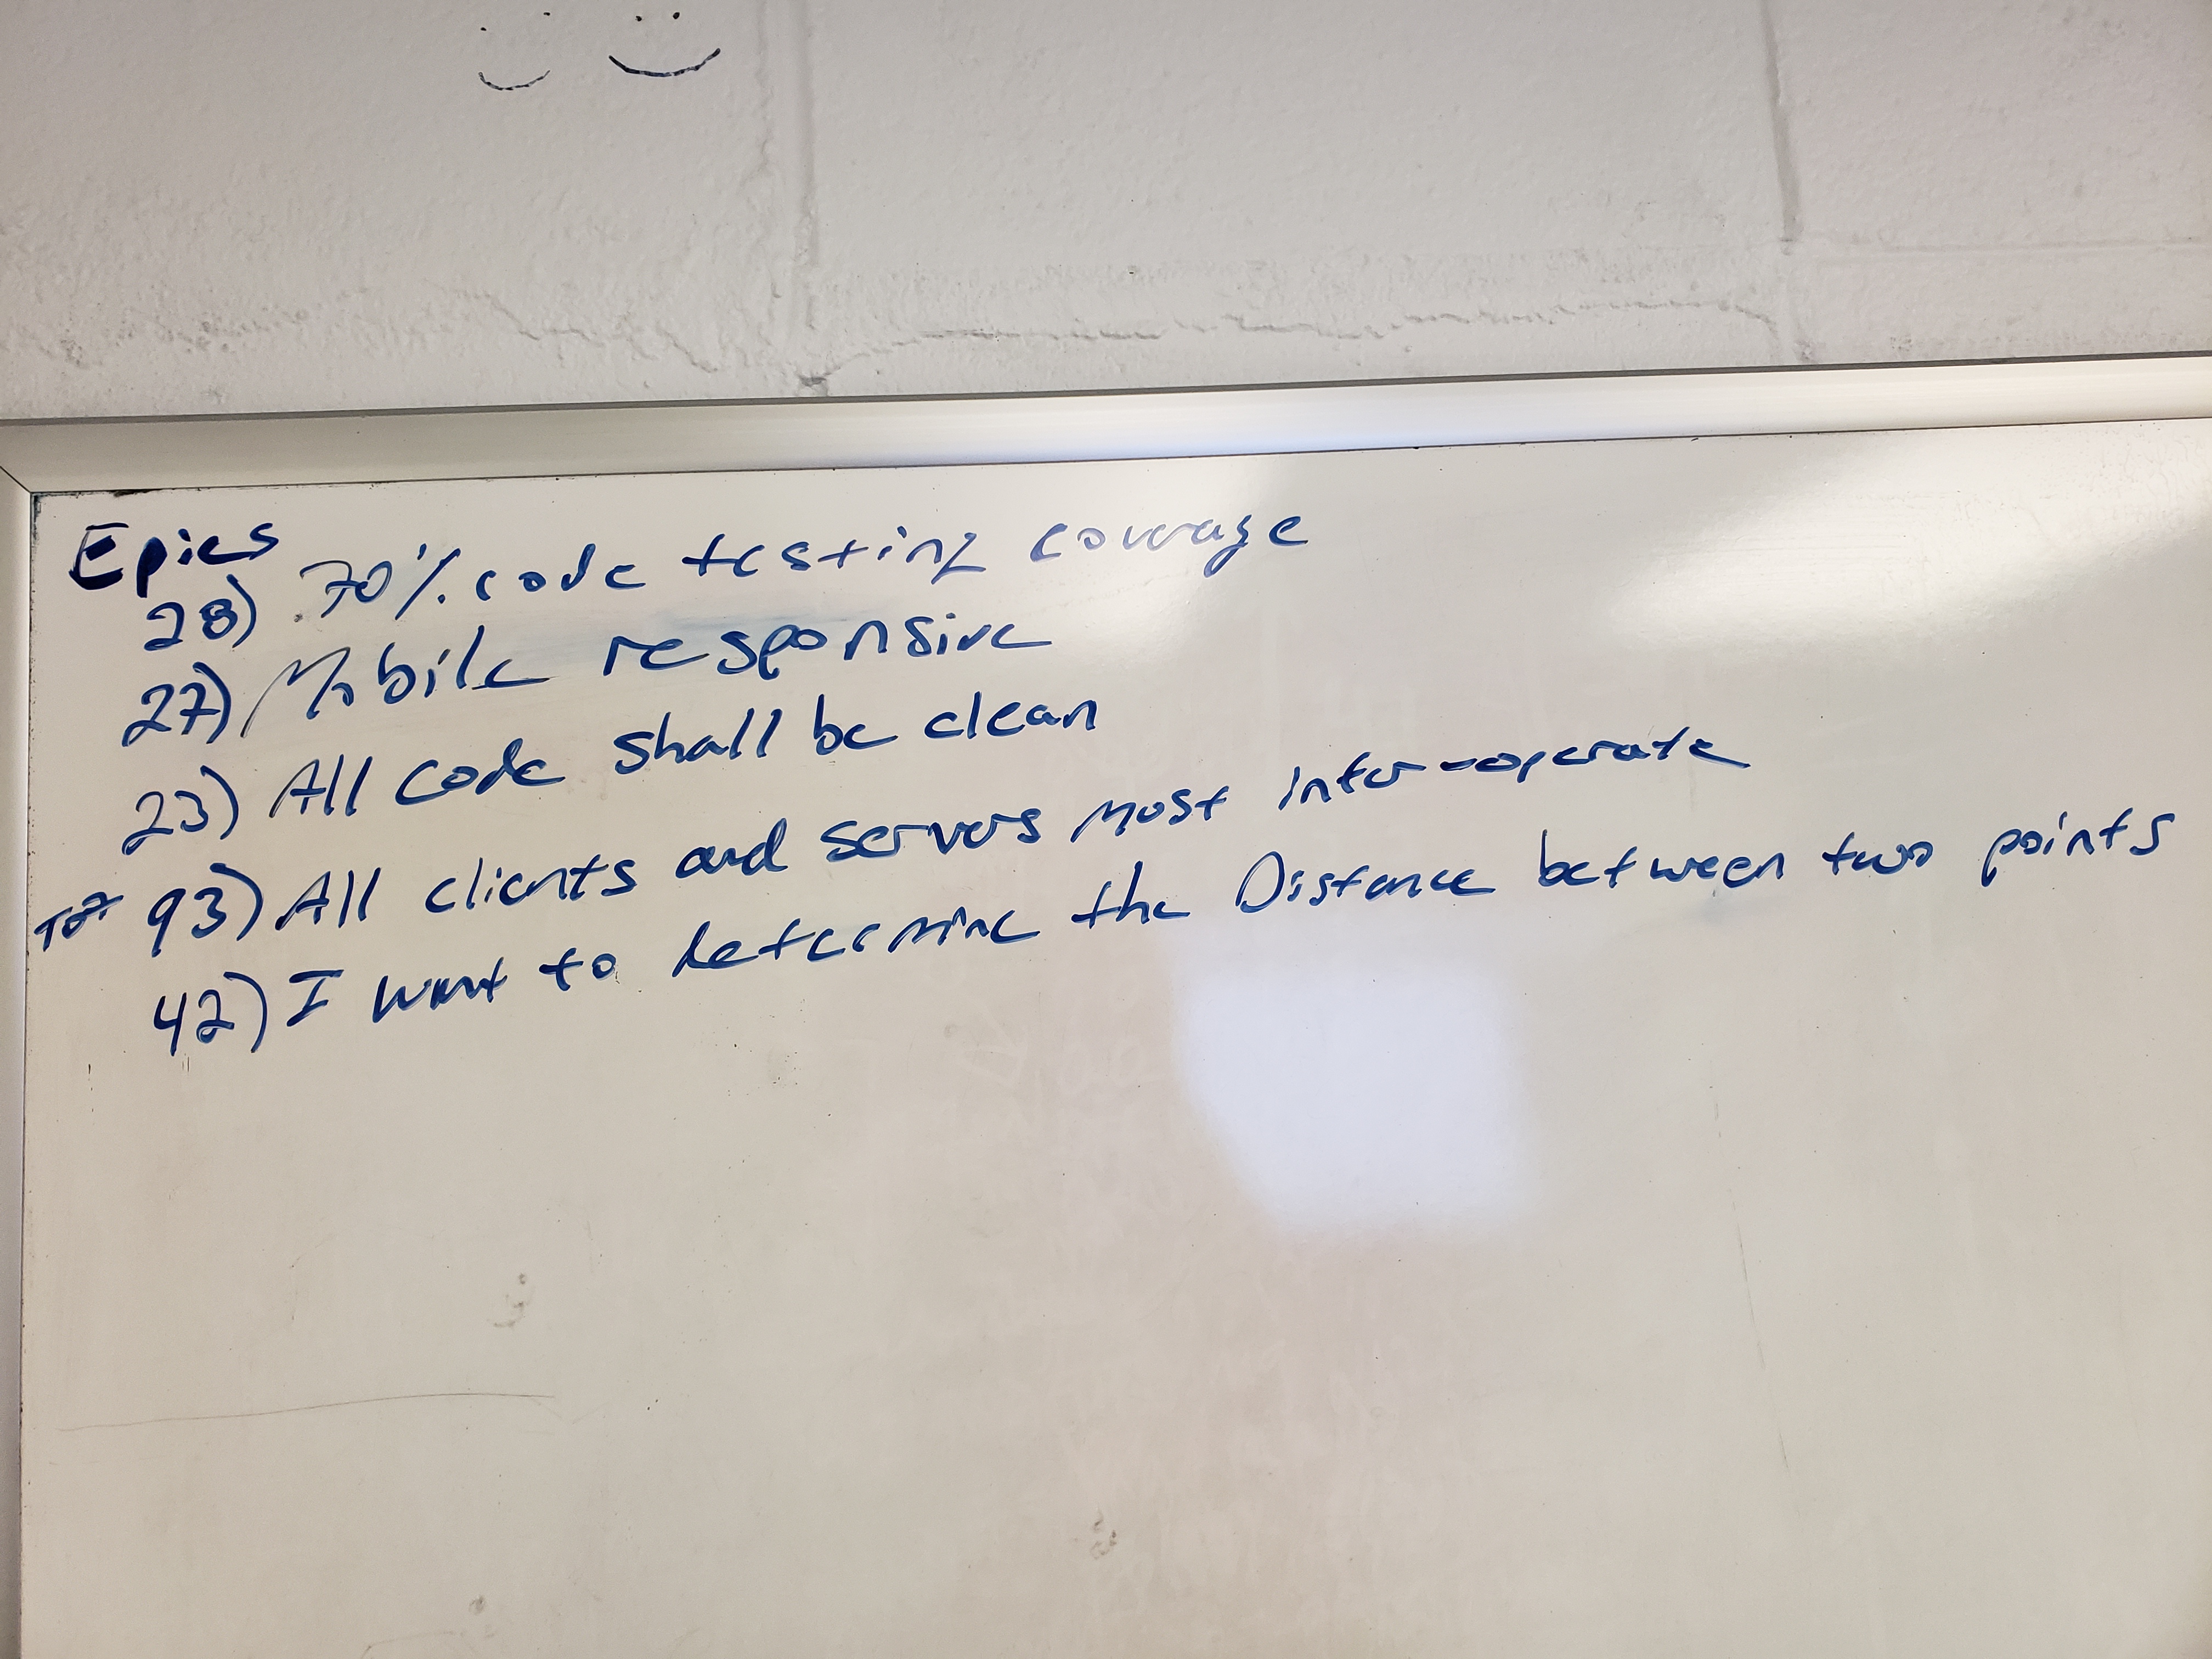 Epics
28) 70% code testing coverage
27) Mobile responsive
23) All code shall be clean
93) All clients and servers most inter-operate
42) I want to determine the Distance between two points